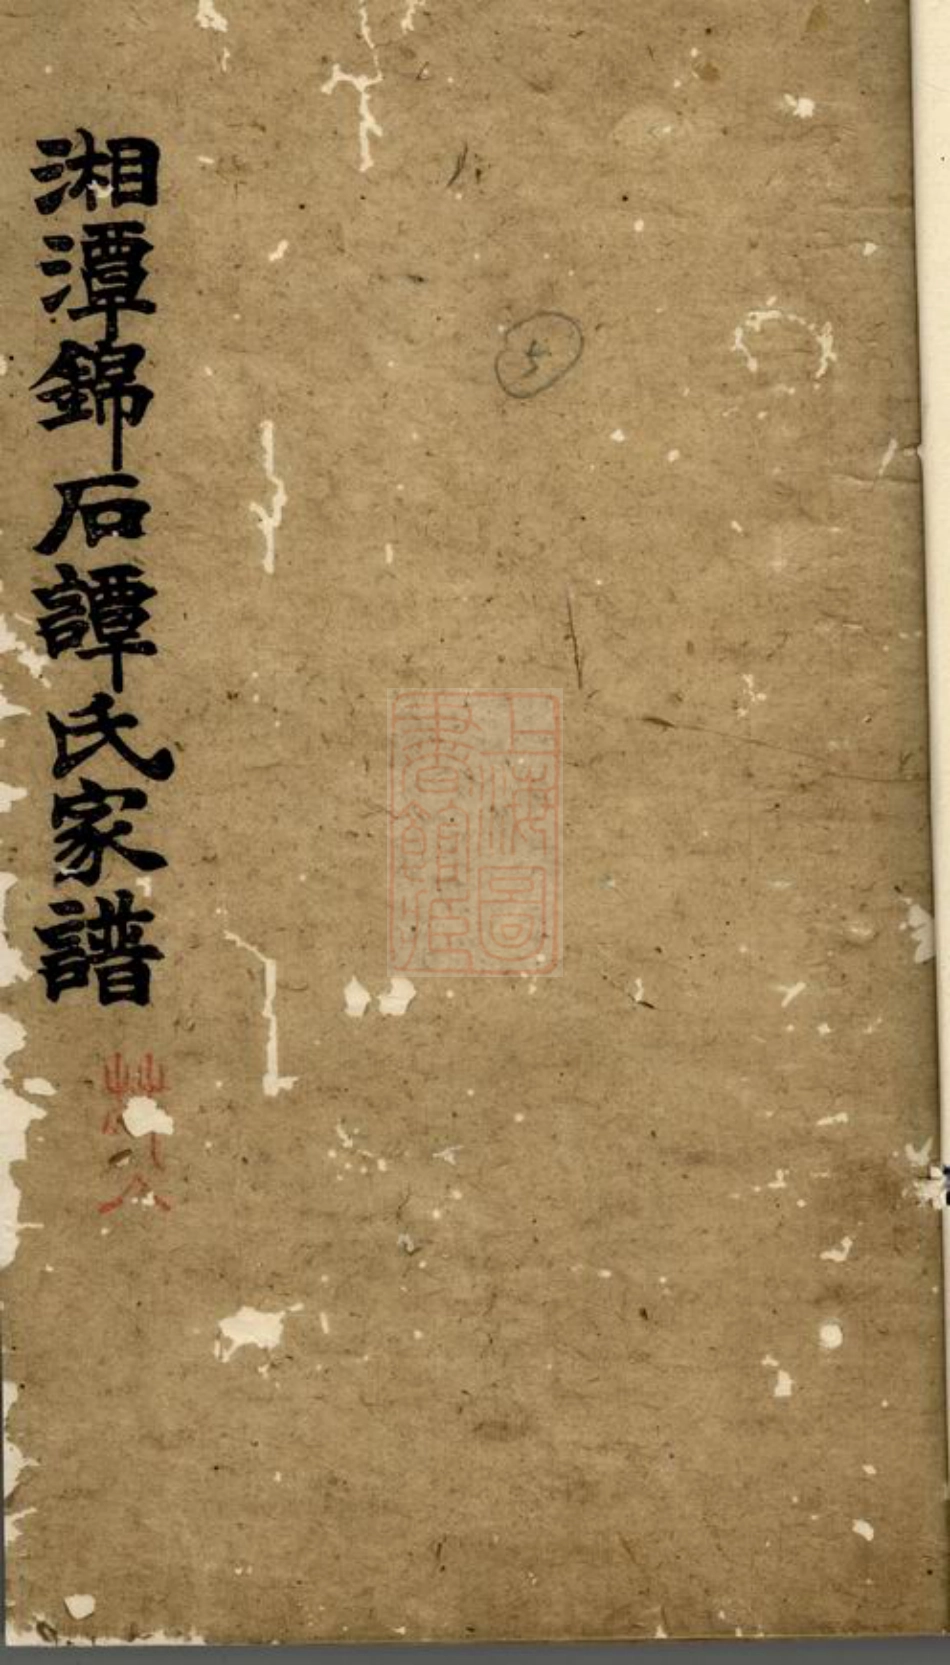 湘潭錦石譚氏家譜
5
上海圖書館藏